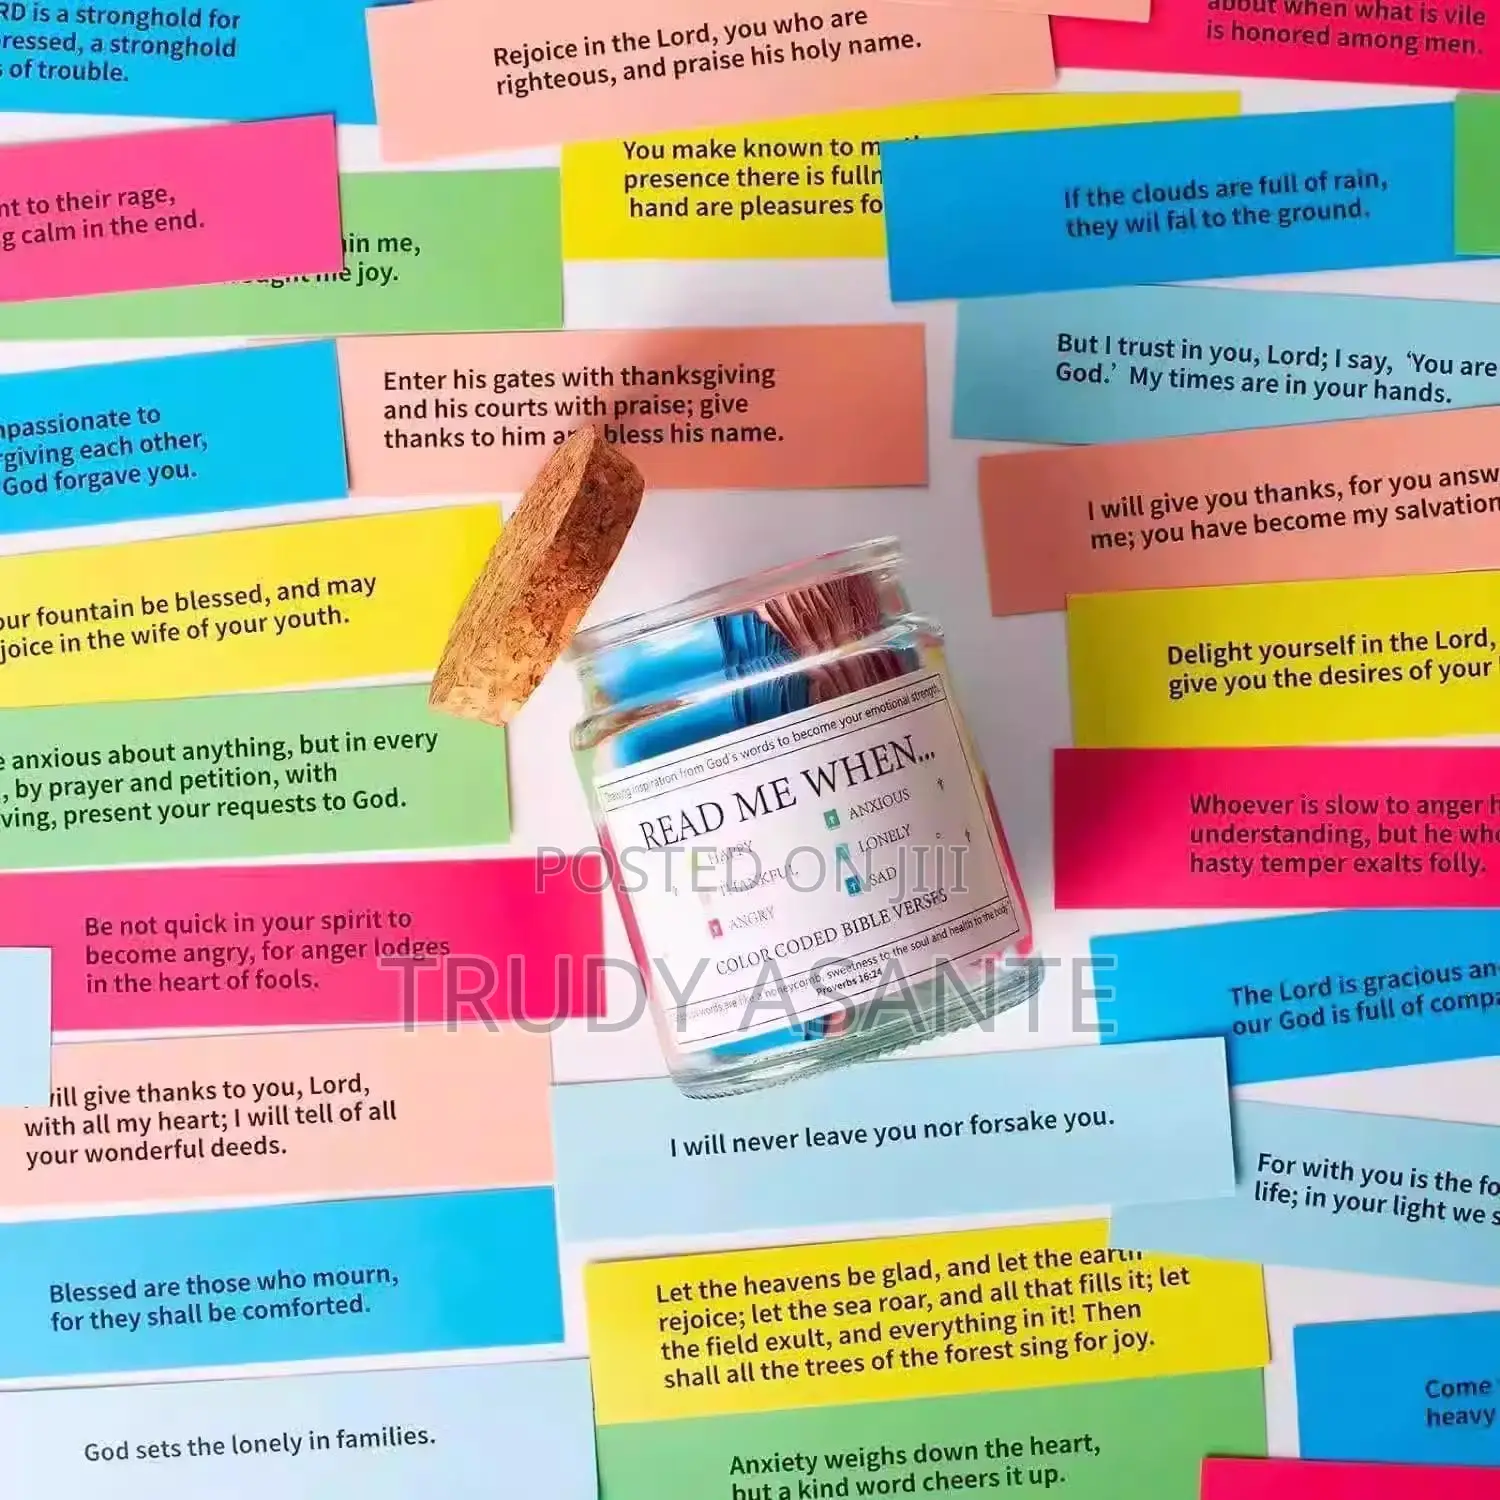 RD is a stronghold for
ressed, a stronghold
of trouble.
Rejoice in the Lord, you who are
righteous, and praise his holy name.
about when what is vile
is honored among men.
nt to their rage,
g calm in the end.
in me,
me joy.
You make known to m
presence there is fulln
hand are pleasures fo
if the clouds are full of rain,
they wil fal to the ground.
But I trust in you, Lord; I say, ‘You are
God.’ My times are in your hands.
mpassionate to
rgiving each other,
God forgave you.
Enter his gates with thanksgiving
and his courts with praise; give
thanks to him and bless his name.
I will give you thanks, for you answ
me; you have become my salvation
our fountain be blessed, and may
joice in the wife of your youth.
Delight yourself in the Lord,
give you the desires of your
e anxious about anything, but in every
, by prayer and petition, with
ving, present your requests to God.
Drawing inspiration from God's words to become your emotional strength.
READ ME WHEN...
HAPPY
THANKFUL
ANGRY
ANXIOUS
LONELY
SAD
COLOR CODED BIBLE VERSES
words are like a honeycomb, sweetness to the soul and health to the body"
Proverbs 16:24
POSTED ON JIJI
TRUDY ASANTE
Whoever is slow to anger h
understanding, but he who
hasty temper exalts folly.
Be not quick in your spirit to
become angry, for anger lodges
in the heart of fools.
The Lord is gracious an
our God is full of compa
will give thanks to you, Lord,
with all my heart; I will tell of all
your wonderful deeds.
I will never leave you nor forsake you.
For with you is the fo
life; in your light we s
Blessed are those who mourn,
for they shall be comforted.
Let the heavens be glad, and let the earth
rejoice; let the sea roar, and all that fills it; let
the field exult, and everything in it! Then
shall all the trees of the forest sing for joy.
Come
heavy
God sets the lonely in families.
Anxiety weighs down the heart,
but a kind word cheers it up.